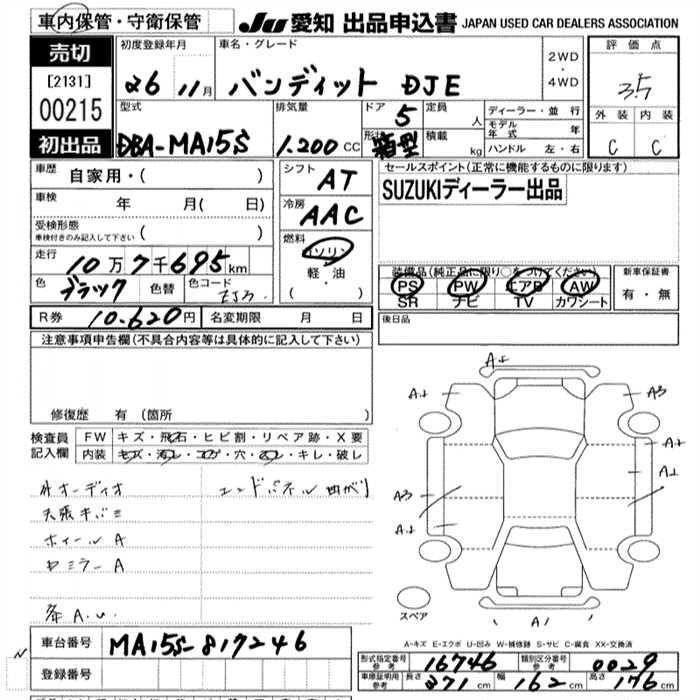 車内保管・守衛保管
JU 愛知 出品申込書 JAPAN USED CAR DEALERS ASSOCIATION
売切
[2131]
00215
初出品
初度登録年月
26 11月
車名・グレード
バンディット DJE
2WD
・
4WD
評価点
3.5
外装 内装
C C
型式
DBA-MA15S
排気量
1.200 CC
ドア
5
形状
箱型
定員
人
積載
kg
ディーラー・並行
モデル年式 年
ハンドル 左・右
車歴
自家用・( )
車検
年 月( 日)
受検形態
車検付きのみ記入して下さい ( )
走行
10万7千695km
色
ブラック
色替
色コード
ZJ3
シフト
AT
冷房
AAC
燃料
ガソリン
軽・油
( ・ )
セールスポイント(正常に機能するものに限ります)
SUZUKIディーラー出品
装備品(純正品に限り○をつけてください)
PS PW エアB AW
SR ナビ TV カワシート
新車保証書
有・無
R券 10.620円 名変期限 月 日
後日品
注意事項申告欄(不具合内容等は具体的に記入して下さい)
修復歴 有(箇所 )
検査員記入欄
FW キズ・飛石・ヒビ割・リペア跡・X要
内装 キズ・汚レ・コゲ・穴・ヌレ・キレ・破レ
外オーディオ
エンドパネル曲がり
天張キバミ
ホイールA
ドミラーA
条A.U.
A+
A+ A3
A+
A+
A3
A+
A1
スペア
A-キズ E-エクボ U-凹み W-補修跡 S-サビ C-腐食 XX-交換済
車台番号 MA15S-817246
登録番号
N
型式指定番号 参考 16746 類別区分番号 参考 0029
車庫証明用 参考 長さ 371cm 幅 162cm 高さ 176cm